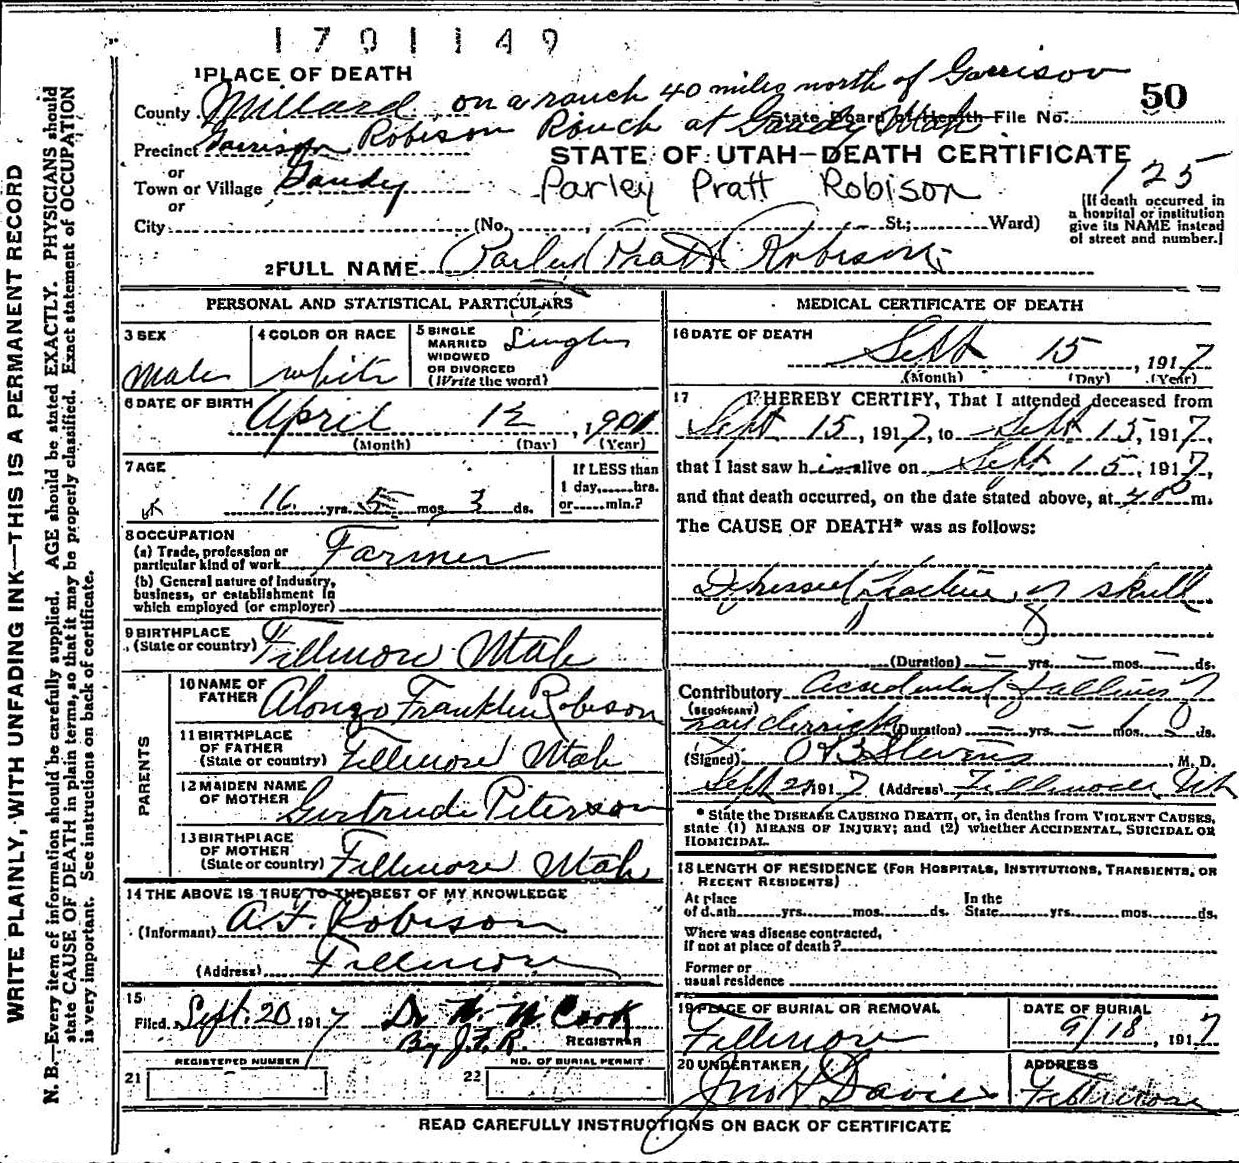 1701149
1 PLACE OF DEATH
County Millard on a ranch 40 miles north of Garrison
State Board of Health File No. 50
Precinct Garrison Robison Ranch at Gandy Utah
or
STATE OF UTAH—DEATH CERTIFICATE
Town or Village Gandy Parley Pratt Robison 125
or
City (No. St.; Ward)
[If death occurred in
a hospital or institution
give its NAME instead
of street and number.]
2 FULL NAME Parley Pratt Robison
PERSONAL AND STATISTICAL PARTICULARS
3 SEX
Male
4 COLOR OR RACE
white
5 SINGLE
MARRIED
WIDOWED
OR DIVORCED
(Write the word)
Single
6 DATE OF BIRTH
April 12, 1901
(Month) (Day) (Year)
7 AGE
16 yrs. 5 mos. 3 ds.
If LESS than
1 day, hrs.
or min.?
8 OCCUPATION
(a) Trade, profession or
particular kind of work Farmer
(b) General nature of Industry,
business, or establishment in
which employed (or employer)
9 BIRTHPLACE
(State or country) Fillmore Utah
PARENTS
10 NAME OF
FATHER Alonzo Franklin Robison
11 BIRTHPLACE
OF FATHER
(State or country) Fillmore Utah
12 MAIDEN NAME
OF MOTHER Gertrude Peterson
13 BIRTHPLACE
OF MOTHER
(State or country) Fillmore Utah
14 THE ABOVE IS TRUE TO THE BEST OF MY KNOWLEDGE
(Informant) A. F. Robison
(Address) Fillmore
15
Filed Sept. 20 1917 Dr N. W Cook
By J. F. R. REGISTRAR
REGISTERED NUMBER
21
NO. OF BURIAL PERMIT
22
MEDICAL CERTIFICATE OF DEATH
16 DATE OF DEATH
Sept 15, 1917
(Month) (Day) (Year)
17 I HEREBY CERTIFY, That I attended deceased from
Sept 15, 1917, to Sept 15, 1917,
that I last saw him alive on Sept 15, 1917,
and that death occurred, on the date stated above, at m.
The CAUSE OF DEATH* was as follows:
Depressed fracture of skull
(Duration) — yrs. — mos. — ds.
Contributory accidental falling of
(SECONDARY)
hay derrick (Duration) — yrs. — mos. 0 ds.
(Signed) Stevens M. D.
Sept 1917 (Address) Fillmore, Ut
* State the DISEASE CAUSING DEATH, or, in deaths from VIOLENT CAUSES,
state (1) MEANS OF INJURY; and (2) whether ACCIDENTAL, SUICIDAL OR
HOMICIDAL.
18 LENGTH OF RESIDENCE (FOR HOSPITALS, INSTITUTIONS, TRANSIENTS, OR
RECENT RESIDENTS)
At place
of death yrs. mos. ds.
In the
State yrs. mos. ds.
Where was disease contracted,
if not at place of death?
Former or
usual residence
19 PLACE OF BURIAL OR REMOVAL
Fillmore
DATE OF BURIAL
9/18, 1917
20 UNDERTAKER
Jno Davies
ADDRESS
Fillmore
READ CAREFULLY INSTRUCTIONS ON BACK OF CERTIFICATE
WRITE PLAINLY, WITH UNFADING INK—THIS IS A PERMANENT RECORD
N. B.—Every item of information should be carefully supplied. AGE should be stated EXACTLY. PHYSICIANS should
state CAUSE OF DEATH in plain terms, so that it may be properly classified. Exact statement of OCCUPATION
is very important. See instructions on back of certificate.